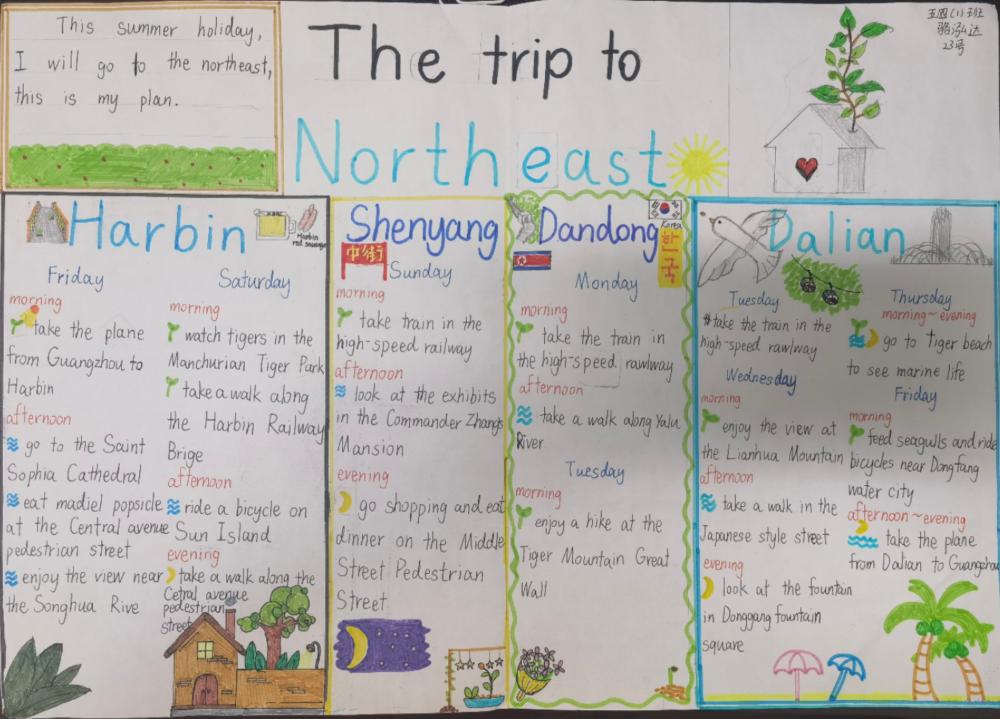 This summer holiday,
I will go to the northeast,
this is my plan.
The trip to
Northeast
23号
Harbin
Harbin
red sausage
Friday
morning
take the plane
from Guangzhou to
Harbin
afternoon
go to the Saint
Sophia Cathedral
eat madiel popsicle
at the Central avenue
pedestrian street
enjoy the view near
the Songhua Rive
Saturday
morning
watch tigers in the
Manchurian Tiger Park
take a walk along
the Harbin Railway
Brige
afternoon
ride a bicycle on
Sun Island
evening
take a walk along the
Cetral avenue
pedestrian
street
Shenyang
中街
Sunday
morning
take train in the
high-speed railway
afternoon
look at the exhibits
in the Commander Zhang's
Mansion
evening
go shopping and eat
dinner on the Middle
Street Pedestrian
Street
Dandong
Korea
한
국
Monday
morning
take the train in
the high-speed rawlway
afternoon
take a walk along Yalu
River
Tuesday
morning
enjoy a hike at the
Tiger Mountain Great
Wall
Dalian
Tuesday
take the train in the
high-speed rawlway
Wednesday
morning
enjoy the view at
the Lianhua Mountain
afternoon
take a walk in the
Japanese style street
evening
look at the fountain
in Donggang fountain
square
Thursday
morning~evening
go to Tiger beach
to see marine life
Friday
morning
feed seagulls and ride
bicycles near Dongfang
water city
afternoon~evening
take the plane
from Dalian to Guangzhou